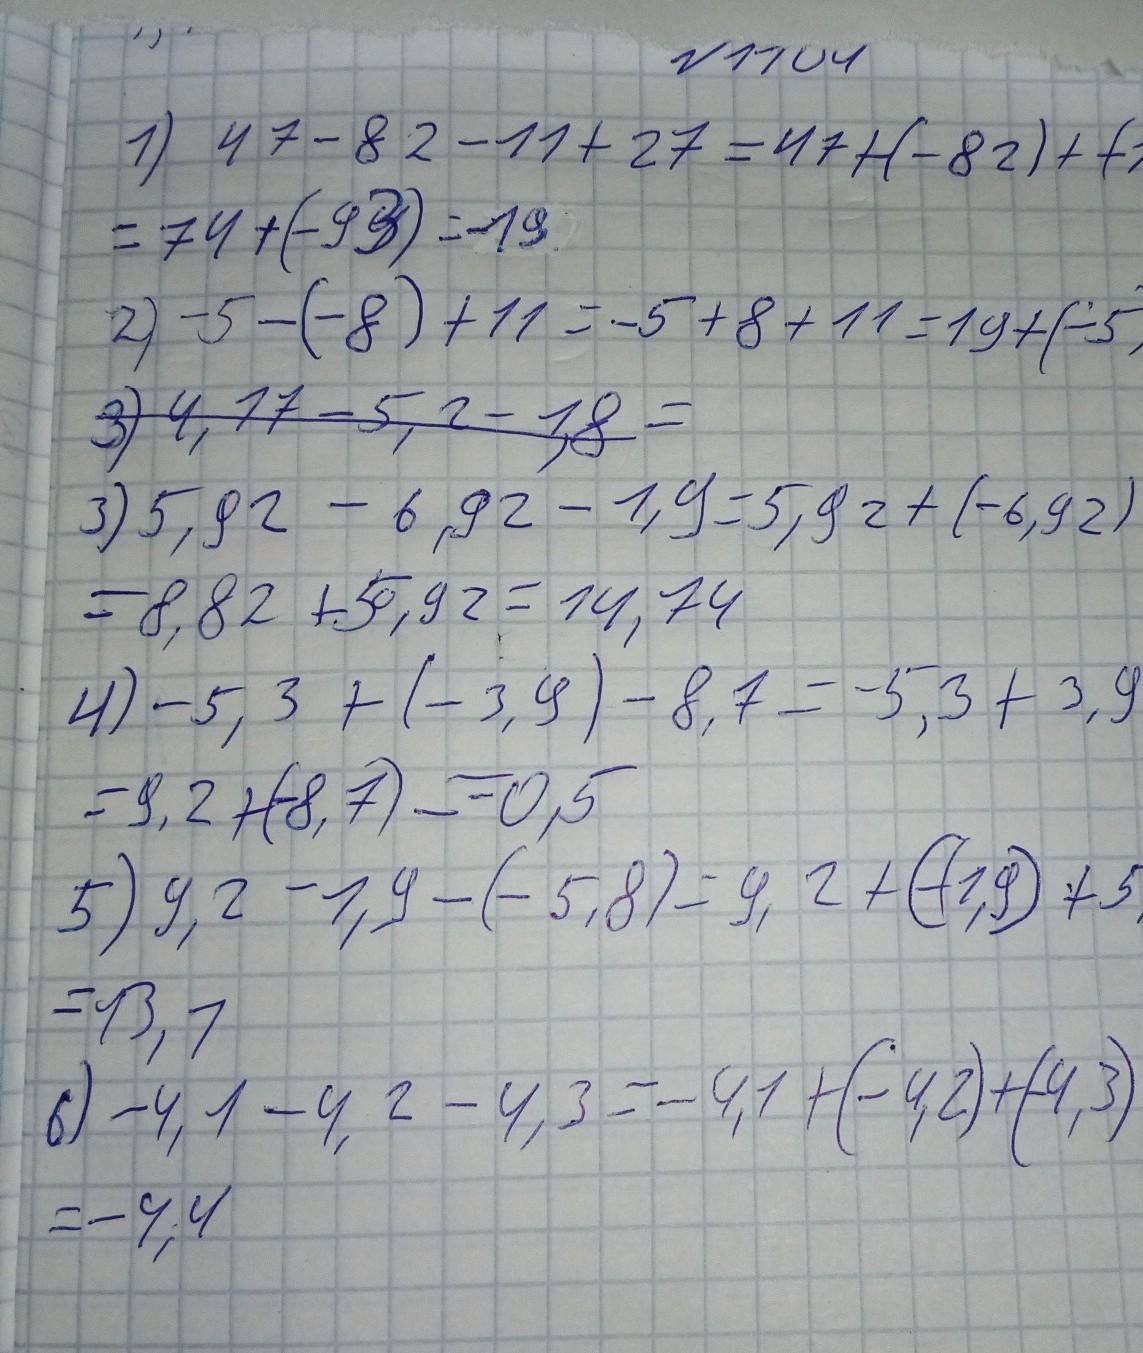 №1104
1) 47-82-11+27=47+(-82)+(-1
=74+(-93)=-19
2) -5-(-8)+11=-5+8+11=19+(-5)
3) 4,17-5,2-1,8=
3) 5,92-6,92-1,9=5,92+(-6,92)
=-8,82+5,92=14,74
4) -5,3+(-3,9)-8,7=-5,3+3,9
=9,2+(-8,7)-=-0,5
5) 9,2-1,9-(-5,8)=9,2+(-1,9)+5,
=13,1
6) -4,1-4,2-4,3=-4,1+(-4,2)+(-4,3)
=-4,4